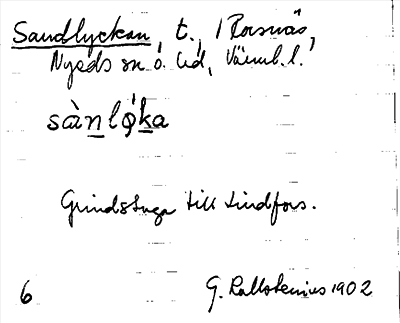 Sandlyckan, t., / Rorsnäs,
Nyeds sn o. hd, Värml. l.
sànlǿka
Grindstuga till Lindfors.
6 G. Kallstenius 1902